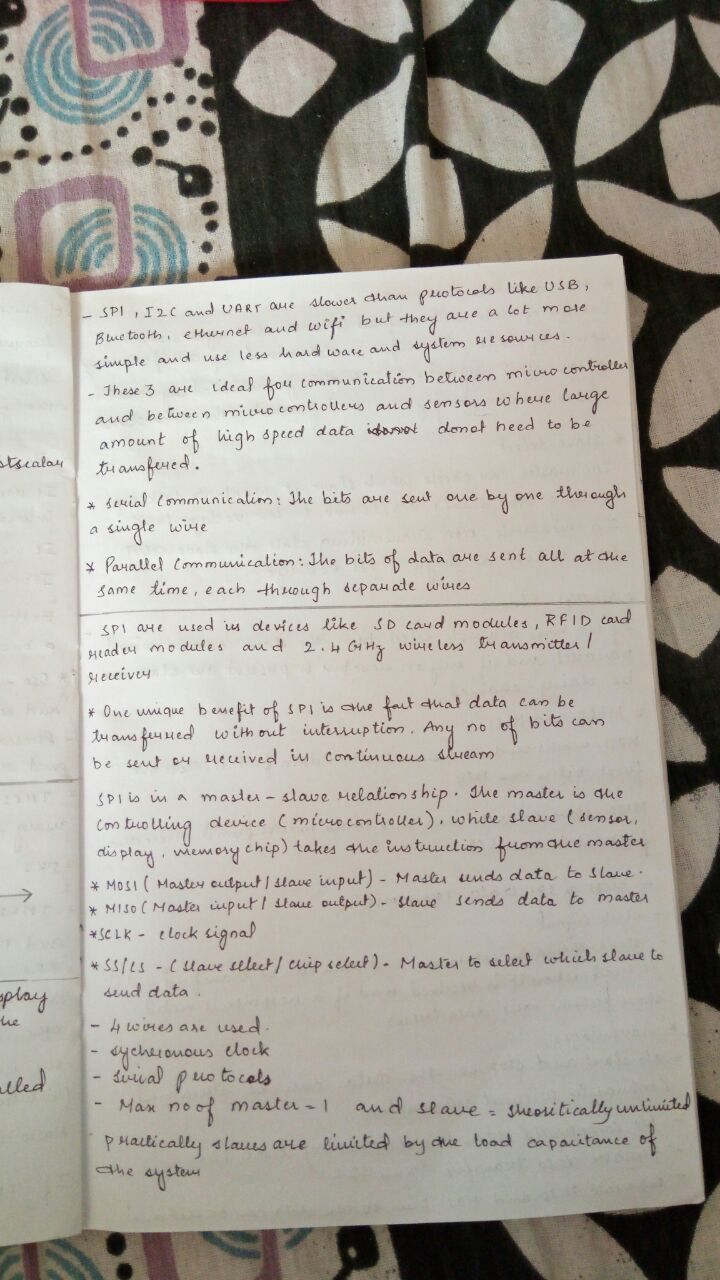 - SPI, I2C and UART are slower than protocols like USB,
Bluetooth, ethernet and wifi but they are a lot more
simple and use less hardware and system resources.
- These 3 are ideal for communication between microcontroller
and between microcontrollers and sensors where large
amount of high speed data donot need to be
transfered.
* Serial Communication: The bits are sent one by one through
a single wire
* Parallel Communication: The bits of data are sent all at the
same time, each through separate wires
SPI are used in devices like SD card modules, RFID card
reader modules and 2.4 GHz wireless transmitter/
receiver
* One unique benefit of SPI is the fact that data can be
transferred without interruption. Any no of bits can
be sent or received in continuous stream
SPI is in a master-slave relationship. The master is the
controlling device (microcontroller), while slave (sensor,
display, memory chip) takes the instruction from the master
* MOSI (Master output/slave input) - Master sends data to slave.
* MISO (Master input/slave output) - slave sends data to master
* SCLK - clock signal
* SS/CS - (slave select/chip select) - Master to select which slave to
send data.
- 4 wires are used.
- sycheronous clock
- serial protocols
- Max no of master = 1 and slave = theoritically unlimited
practically slaves are limited by the load capacitance of
the system
stscalar
splay
the
alled